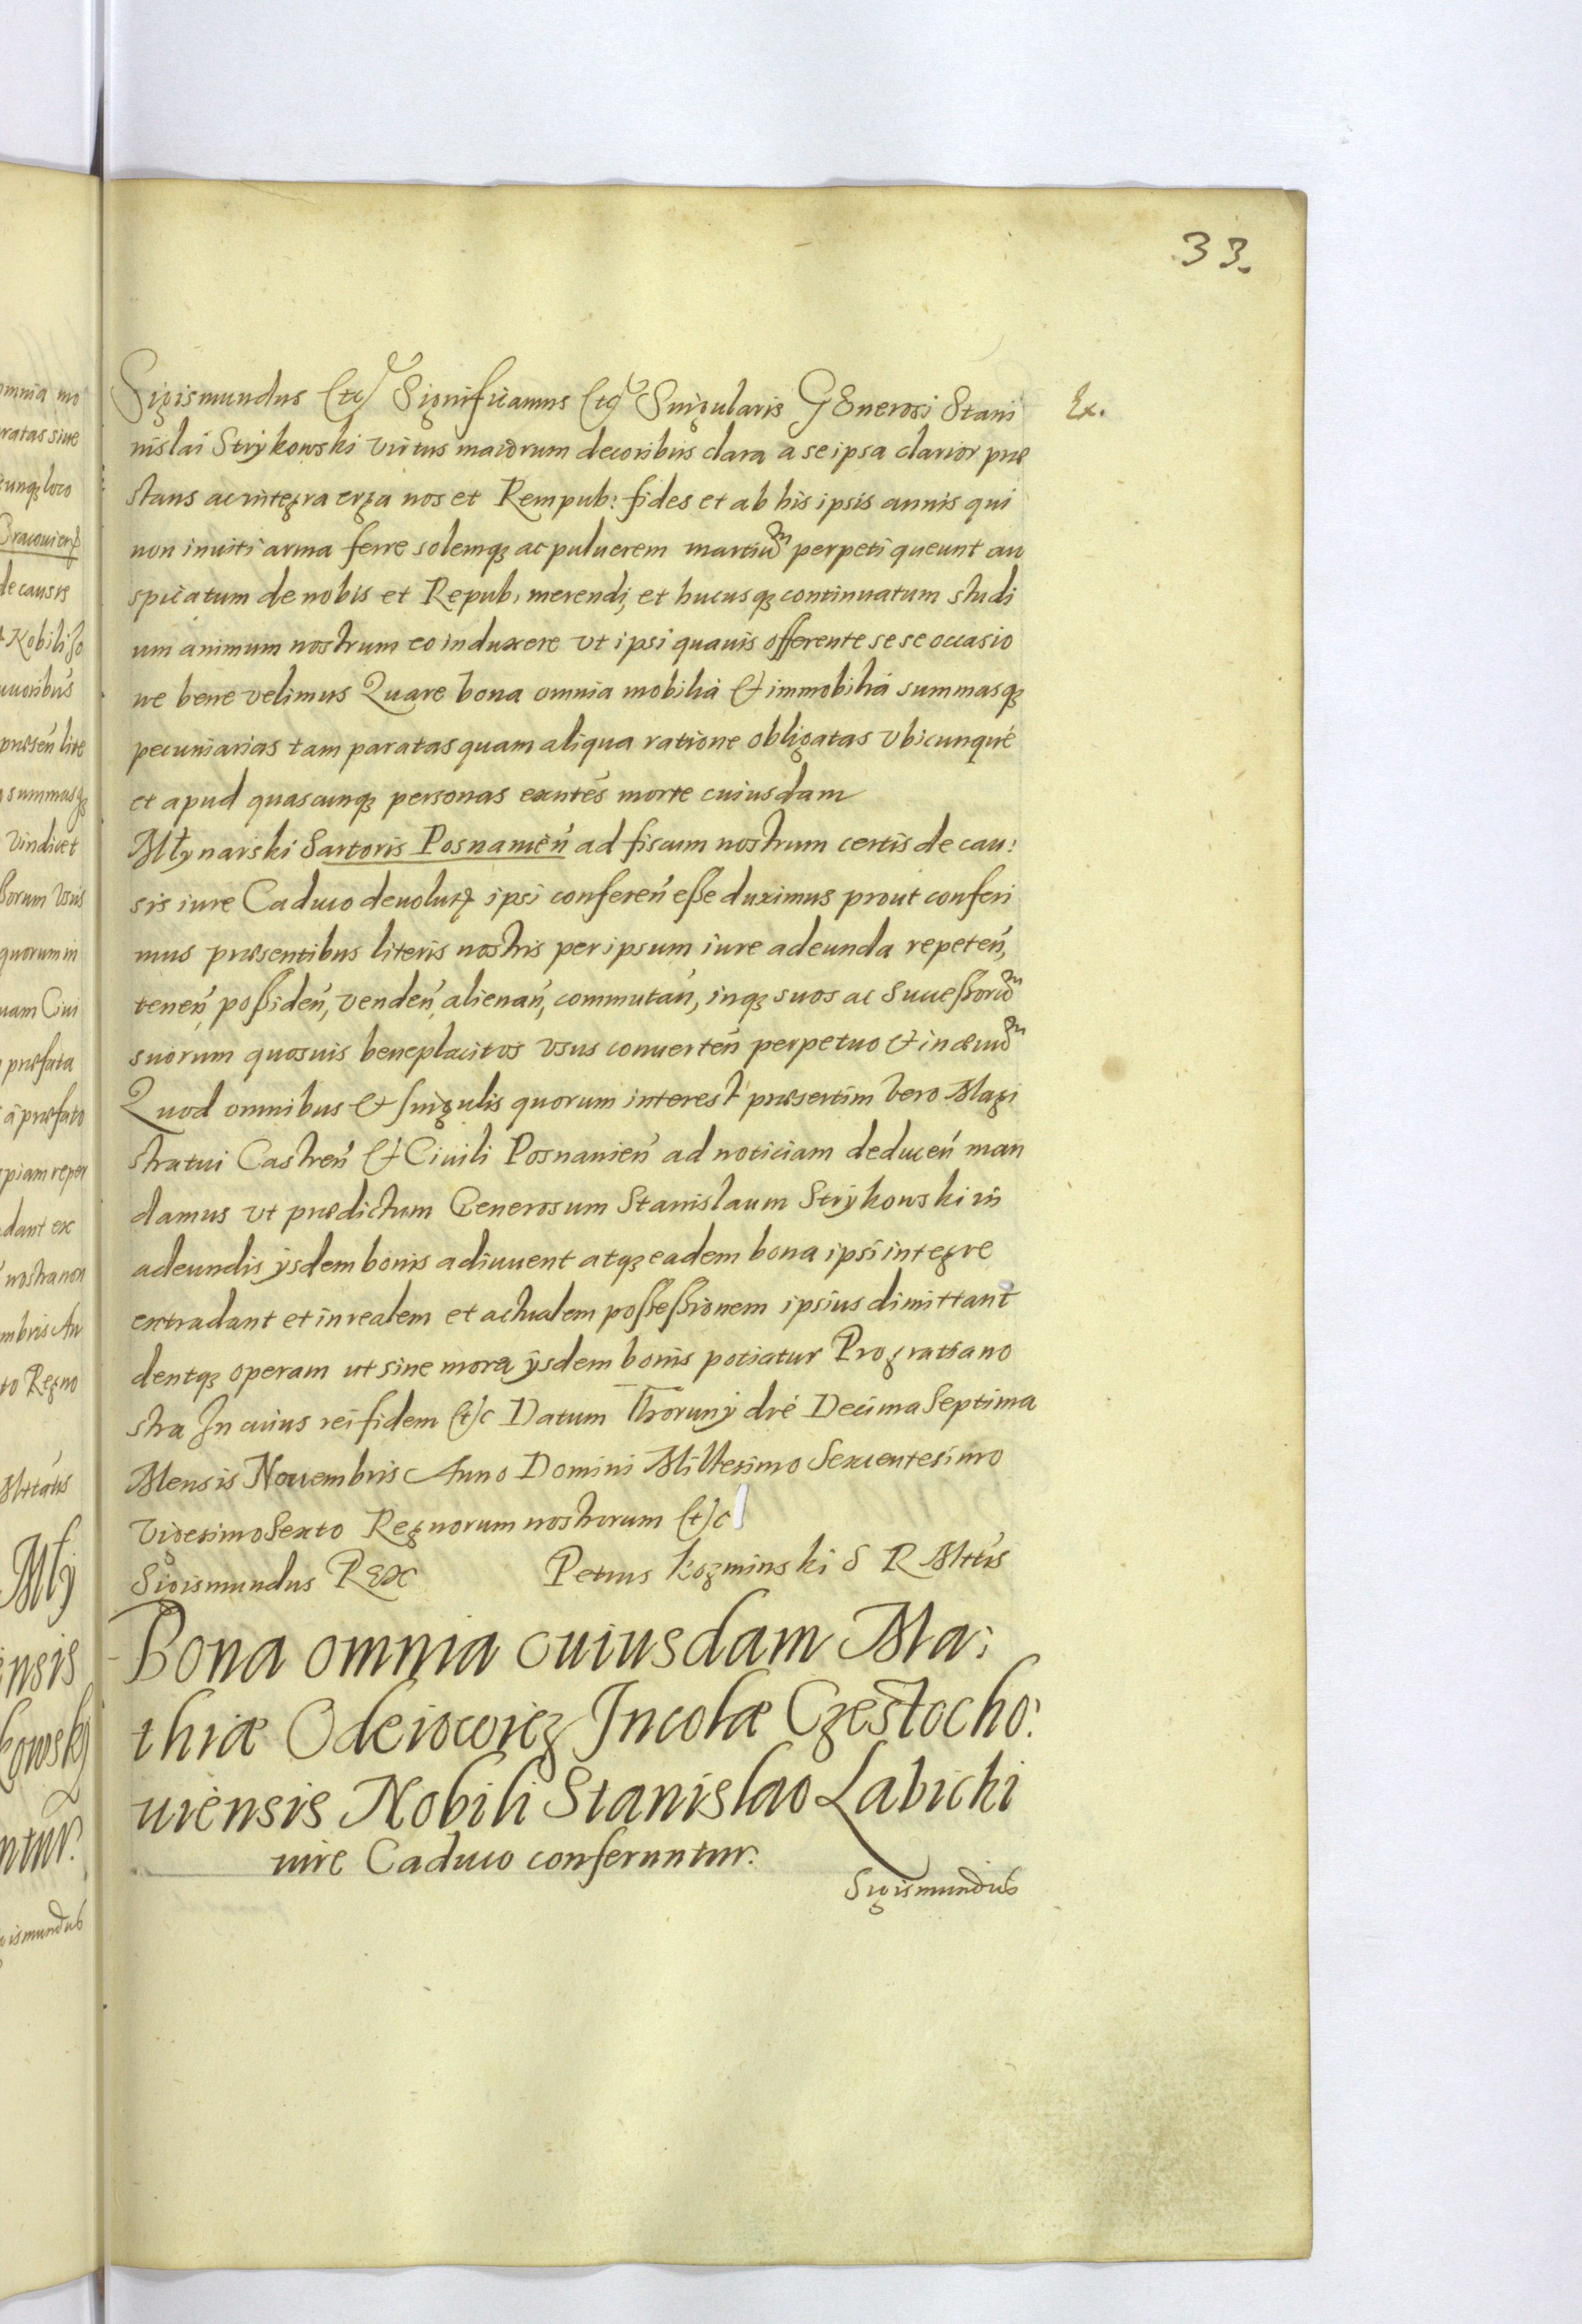 33.
Sigismundus etc Significamus etc Singularis GEnerosi Stani
nislai Strÿkowski virtus maiorum decoribus clara a se ipsa clarior præ
stans ac integra erga nos et Rempub: fides et ab his ipsis annis qui
non inuiti arma ferre solemq3 ac puluerem martiũ perpeti queunt au
spicatum de nobis et Repub, merendi, et hucusq3 continuatum studi
um animum nostrum eo induxere vt ipsi quauis offerente se se occasio
ne bene velimus Quare bona omnia mobilia & immobilia summasq3
pecuniarias tam paratas quam aliqua ratione obligatas vbicunque
et apud quascunq3 personas exntẽs morte cuiusdam
Młynarski Sartoris Posnanieñ ad fiscum nostrum certis de cau:
sis iure Caduco deuoluta ipsi confereñ eße duximus prout conferi
mus præsentibus literis nostris per ipsum iure adeunda repeteñ,
teneñ, poßideñ, vendeñ, alienañ, commutañ, inq3 suos ac Succeßorũ
suorum quosuis beneplacitos vsus conuerteñ perpetuo & in æuũ
Quod omnibus & singulis quorum interest præsertim vero Magi
stratui Castreñ & Ciuili Posnanieñ ad noticiam deduceñ man
damus vt prædictum Generosum Stanislaum Strÿkowski in
adeundis ÿsdem bonis adiuuent atq3 eadem bona ipsi integre
extradant et in realem et actualem poßeßionem ipsius dimittant
dentq3 operam ut sine mora ÿsdem bonis potiatur Pro gratia no
stra In cuius rei fidem etc Datum Thorunÿ die Decima Septima
Mensis Nouembris Anno Domini Millesimo Sexcentesimo
Vigesimo Sexto Regnorum nostrorum etc
Sigismundus REx Petrus Kozminski S R Mttis
Bona omnia cuiusdam Ma:
thiæ Odeiowicz Incolæ Częstocho:
uiensis Nobili Stanislao Labicki
iure Caduco conferuntur.
Sigismundus
Ex.